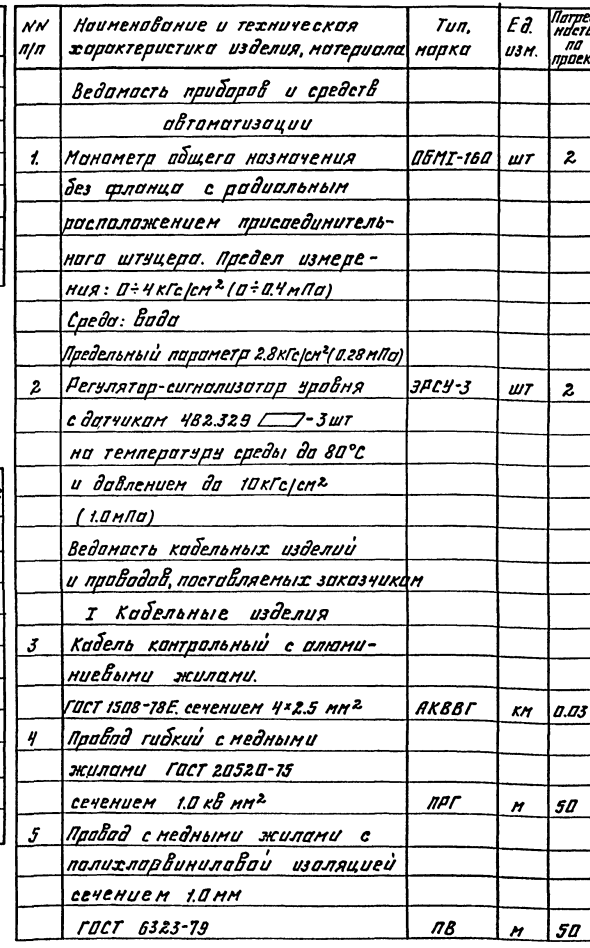 NN Наименование и техническая Тип, Ед. Потреб
п/п характеристика изделия, материала марка изм. ность по проек
Ведомость приборов и средств
автоматизации
1. Манометр общего назначения ОБМI-160 шт 2
без фланца с радиальным
расположением присоединитель-
ного штуцера. Предел измере-
ния: 0÷4 кГс/см² (0÷0.4 мПа)
Среда: вода
Предельный параметр 2.8кГс/см² (0.28мПа)
2 Регулятор-сигнализатор уровня ЭРСУ-3 шт 2
с датчиком 4В2.329 -3шт
на температуру среды до 80°С
и давлением до 10кГс/см²
(1.0мПа)
Ведомость кабельных изделий
и проводов, поставляемых заказчиком
I Кабельные изделия
3 Кабель контрольный с алюми-
ниевыми жилами.
ГОСТ 1508-78Е. сечением 4×2.5 мм² АКВВГ км 0.03
4 Провод гибкий с медными
жилами ГОСТ 20520-75
сечением 1.0 кв мм² ПРГ м 50
5 Провод с медными жилами с
полихлорвиниловой изоляцией
сечением 1.0мм
ГОСТ 6323-79 ПВ м 50